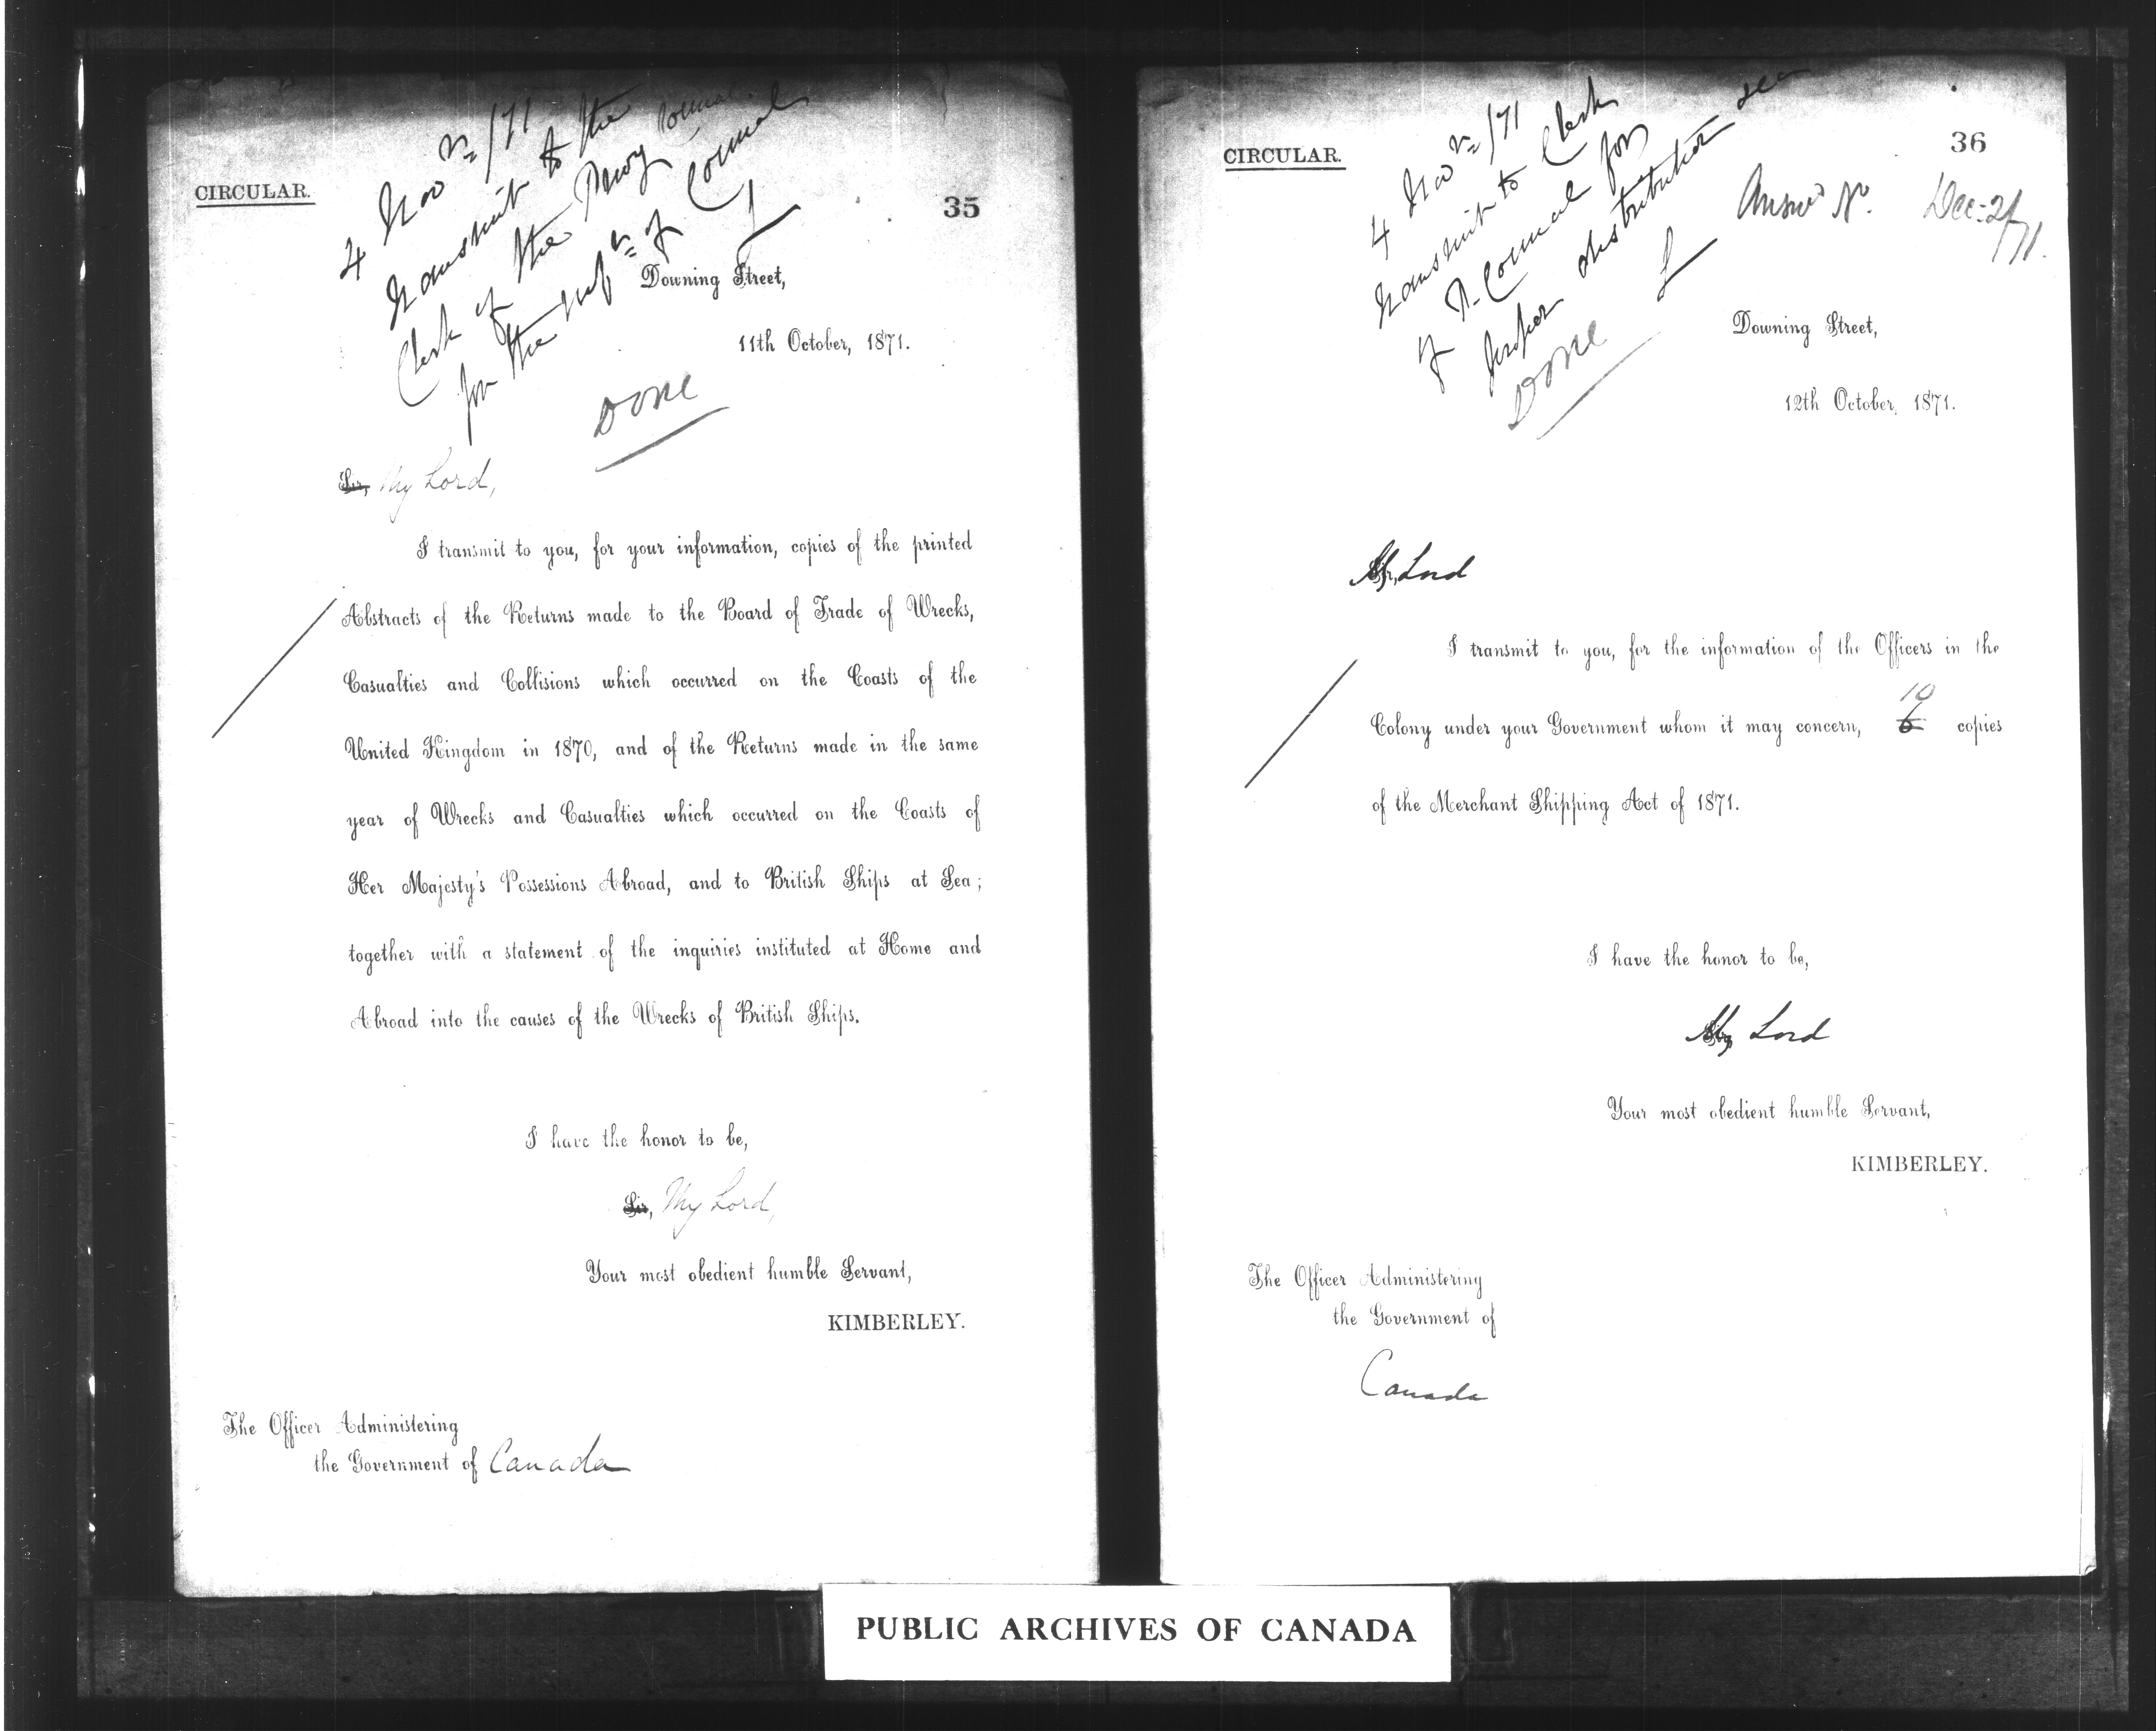 CIRCULAR.
35
4 Nov r /71
Transmit to the
Clerk of the Privy Council
for the inf n of Council
L
Downing Street,
11th October, 1871.
Done
Sir, My Lord,
I transmit to you, for your information, copies of the printed
Abstracts of the Returns made to the Board of Trade of Wrecks,
Casualties and Collisions which occurred on the Coasts of the
United Kingdom in 1870, and of the Returns made in the same
year of Wrecks and Casualties which occurred on the Coasts of
Her Majesty's Possessions Abroad, and to British Ships at Sea;
together with a statement of the inquiries instituted at Home and
Abroad into the causes of the Wrecks of British Ships.
I have the honor to be,
Sir, My Lord,
Your most obedient humble Servant,
KIMBERLEY.
The Officer Administering
the Government of Canada
CIRCULAR.
36
4 Nov r /71
Transmit to Clerk
of P. Council for
proper distribution
L
Answd No. Dec. 2/71.
Done
Downing Street,
12th October, 1871.
My Lord
I transmit to you, for the information of the Officers in the
10
Colony under your Government whom it may concern, 6 copies
of the Merchant Shipping Act of 1871.
I have the honor to be,
My Lord
Your most obedient humble Servant,
KIMBERLEY.
The Officer Administering
the Government of
Canada
PUBLIC ARCHIVES OF CANADA